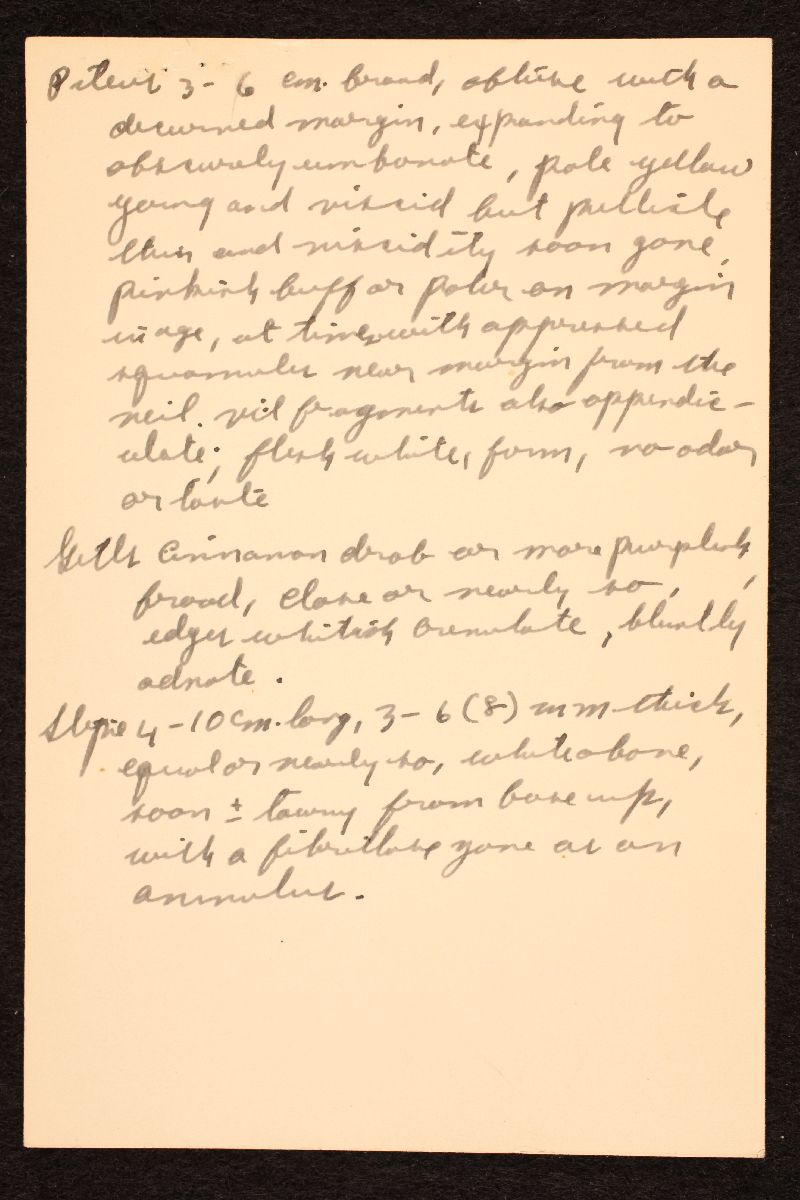 Pileus 3-6 cm. broad, obtuse with a
decurved margin, expanding to
obscurely umbonate, pale yellow
young and viscid but pellicle
thin and viscidity soon gone,
pinkish buff or paler on margin
in age, at times with appressed
squamules near margin from the
veil. veil fragments also appendic-
ulate; flesh white, firm, no odor
or taste
Gills cinnamon drab or more purplish,
broad, close or nearly so,
edges whitish crenulate, bluntly
adnate.
Stipe 4-10 cm. long, 3-6 (8) mm thick,
equal or nearly so, white above,
soon ± tawny from base up,
with a fibrillose zone as an
annulus.